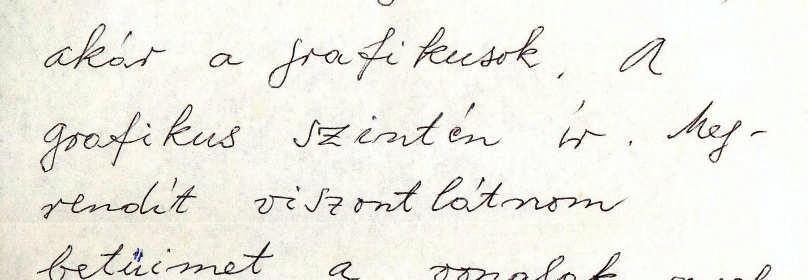 akár a grafikusok. A
grafikus szintén ír. Meg-
rendít viszontlátnom
betűimet a